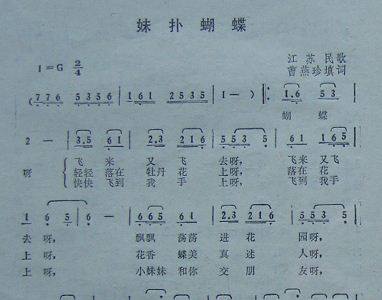 妹扑蝴蝶
江苏民歌
1=G 2/4
曹燕珍填词
(776 5336 | 161 2535 | 1 — ) ‖: 1.6 53 |
蝴 蝶
2 — | 3.5 61 | 2.3 216 | 555 · | 61 165 |
飞 来 又 飞 去呀, 飞来又飞
呀 轻轻 落在 牡丹 花 上呀, 落在 花
快快 飞到 我 手 上呀, 飞到 我手
1 6 5 · | · — | 665 61 | 2.3 216 | 555 · |
去 呀, 飘飘 荡荡 进 花 园呀,
上 呀, 花香 蝶美 真 迷 人呀,
上 呀, 小妹妹 和你 交 朋 友呀,